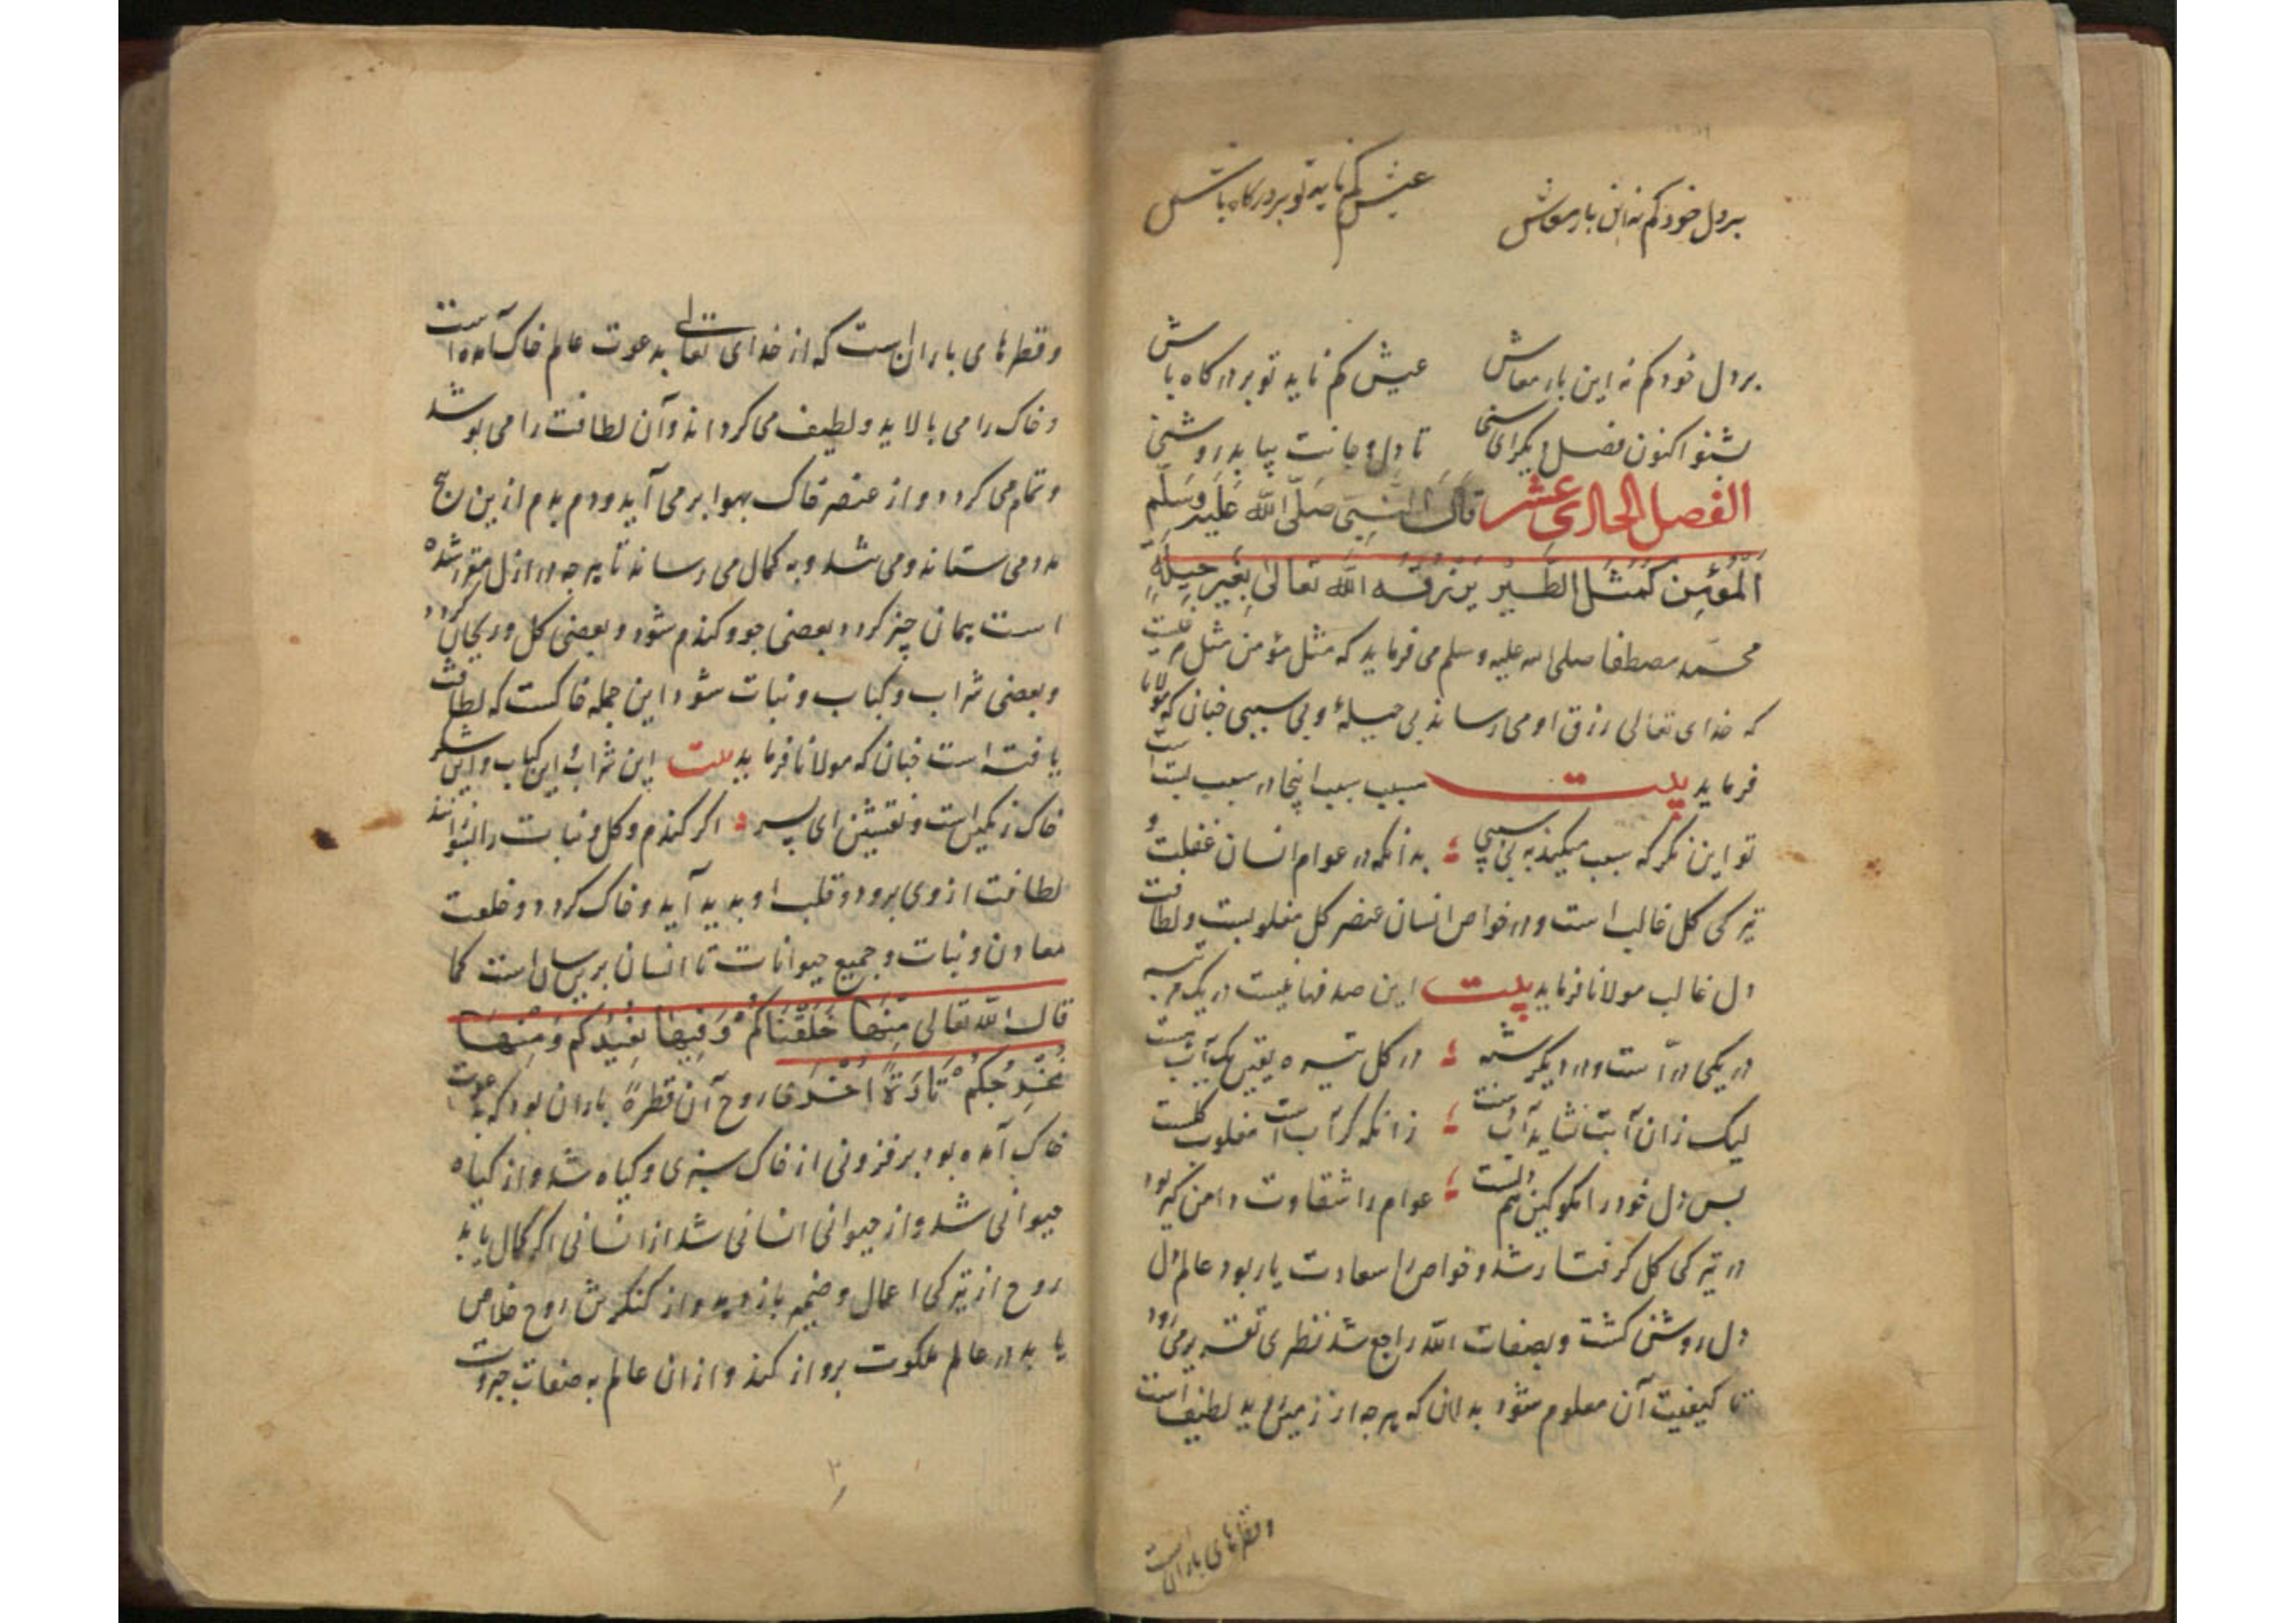 بر دل خود کم نه این بار معاش عیش کم ناید تو بر درکاه باش
بر دل خود کم نه این بار معاش عیش کم ناید تو بر درکاه باش
بشنو اکنون فصل دیکر ای سنی تا دل و جانت بیابد روشنی
الفصل الحادی عشر قال النبی صلی الله علیه وسلم
المؤمن کمثل الطیر یرزقه الله تعالی بغیر حیله
محمد مصطفا صلی الله علیه وسلم می فرماید که مثل مؤمن مثل مرغیست
که خدای تعالی رزق او می رساند بی حیلهٔ و بی سببی چنان که مولانا
فرماید بیت سبب سبب اینجا در سبب بست است
تو این نکر که سبب میکند به بی سببی بدانکه در عوام انسان غفلت و
تیرکی کل غالب است و در خواص انسان عنصر کل مغلوبست و لطافت
دل غالب مولانا فرماید بیت این صدفها نیست در یک مرتبه
در یکی در است و در دیکر شبه در کل تیره یقین هم آب هست
لیک زان آبت نشاید آب دست زانکه کر آب است مغلوب کلست
بس دل خود را مکو کین هم دلست عوام را شقاوت دامن کیر بود
در تیرکی کل کرفتار شد و خواص را سعادت یار بود عالم دل
دل روشن کشت و بصفات الله راجع شد نظری تفسیر می رود
تا کیفیت آن معلوم شود بدان که هرجه از زمین اید لطیف است
وقطرهای باران است
و قطرهای باران است که از خدای تعالی به دعوت عالم خاک آمده است
و خاک را می بالاید و لطیف می کرداند و آن لطافت را می بوشد
و تمام می کردد و از عنصر خاک بهوا بر می آید و دم بدم از ین بیخ
مدد می ستاند و می شد و به کمال می رساند تا هرجه در ازل مقرر شده
است همان چیز کردد بعضی جو و کندم شود و بعضی کل و ریحان کردد
و بعضی شراب و کباب و نبات شود این جمله خاکست که لطافت
یافته است چنان که مولانا فرماید بیت این شراب و این کباب و این شکر
خاک رنکین است و نقشین ای پسر اکر کندم و کل و نبات را
لطافت از وی برود و قلب او بدید آید و خاک کردد و خلعت
معادن و نبات و جمیع حیوانات تا انسان برین سان است کما
قال الله تعالی منها خلقناکم وفیها نعیدکم ومنها
نخرجکم تارة اخری روح آن قطرهٔ باران بود که بدعوت
خاک آمده بود بر فزونی از خاک سبزی و کیاه شد و از کیاه
حیوانی شد و از حیوانی انسانی شد از انسانی اکر کمال یابد
روح از تیرکی اعمال و از روح خلاص
یابد در عالم ملکوت برواز کند و ازان عالم به صفات جبروت